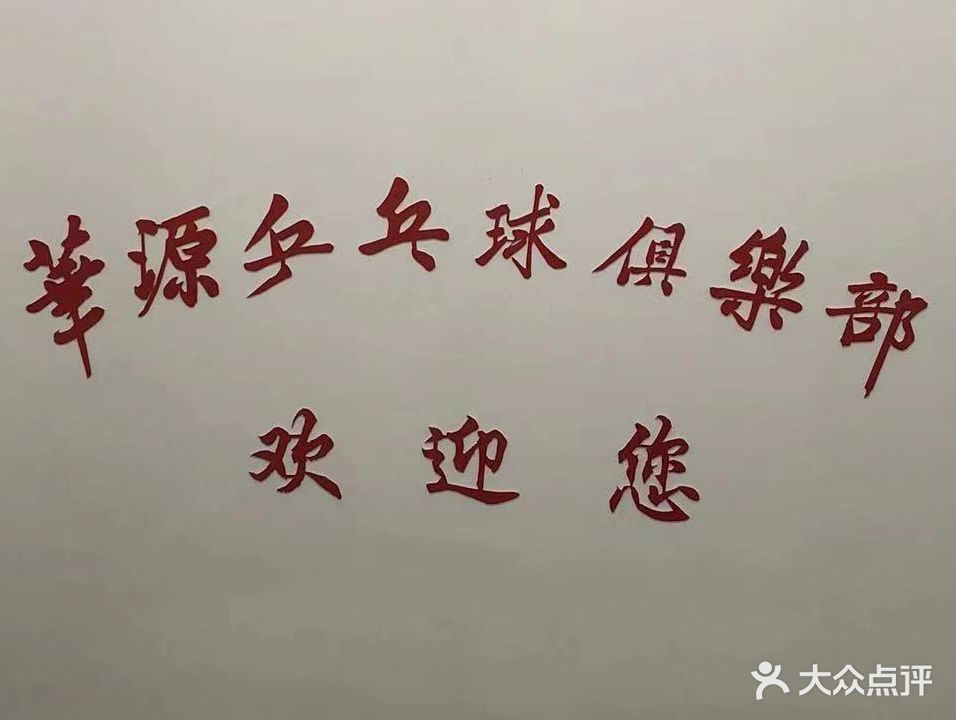 華源乒乓球俱樂部
欢迎您
大众点评